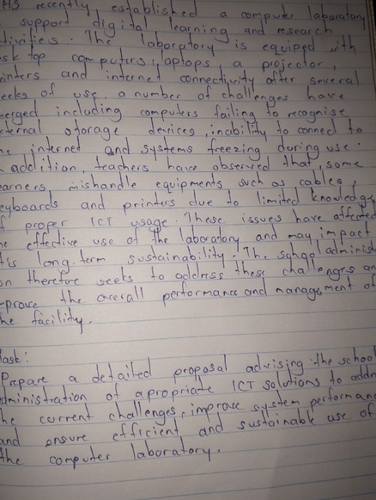 HS recently established a computer laboratory
support digital learning and research
tivities. The laboratory is equiped with
sk top computers, laptops a projector,
inters and internet connectivity after several
eeks of use, a number of challenges have
erged including computers failing to recognise
ternal storage devices, inability to connect to
he internet and systems freezing during use.
addition, teachers have observed that some
earners mishandle equipments such as cables,
eyboards and printers due to limited knowledge
f proper ICT usage. These issues have affected
he effective use of the laboratory and may impact
its long-term sustainability. The school administ
on therefore seeks to address these challenges an
prove the overall performance and management of
he facility.
Task:
Prepare a detailed proposal advising the school
dministration of apropriate ICT solutions to addr
the current challenges, improve system performan
and ensure efficient and sustainable use of
the computer laboratory.